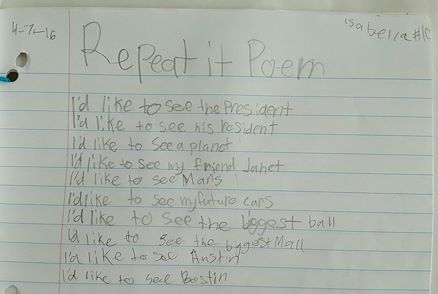 4-7-16
Isabella #10
Repeat it Poem
I'd like to see the President
I'd like to see his resident
I'd like to see a planet
I'd like to see my friend Janet
I'd like to see Mars
I'd like to see my future cars
I'd like to see the biggest ball
I'd like to see the biggest Mall
I'd like to see Austin
I'd like to see Bostin